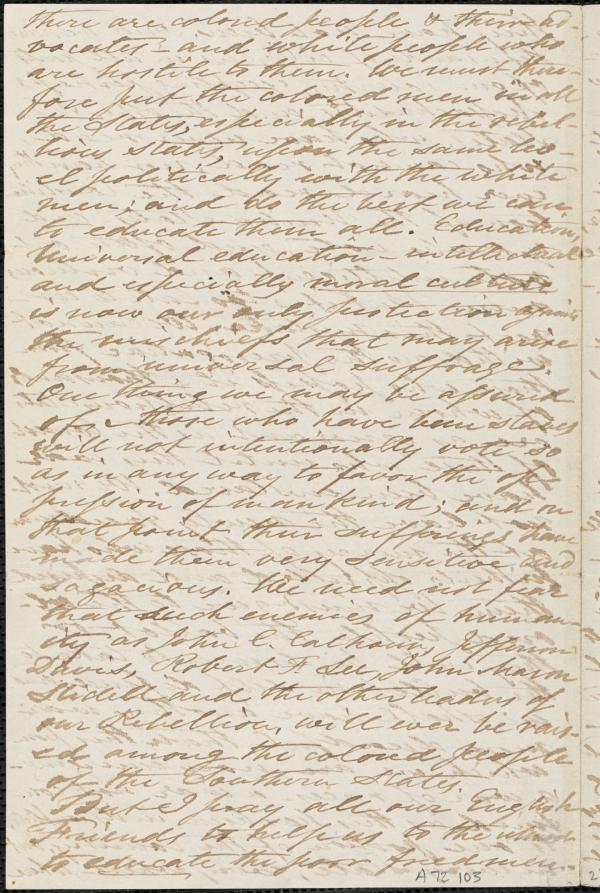 there are colored people & their ad-
vocates – and white people who
are hostile to them. We must there-
fore put the colored men in all
the States, especially in the rebel-
lious states, upon the same lev-
el politically with the white
men; and do the best we can
to educate them all. Education,
Universal education – intellectual
and especially moral culture
is now our only protection against
the mischiefs that may arise
from universal suffrage.
One thing we may be assured
of, those who have been slaves
will not intentionally vote so
as in any way to favor the op-
pression of mankind; and on
that point their sufferings have
made them very sensitive and
sagacious. We need not fear
that such enemies of human-
ity as John C. Calhoun, Jefferson
Davis, Robert Lee, John Mason
Slidell and the other leaders of
our Rebellion, will ever be rais-
ed among the colored people
of the Southern States.
But I pray all our English
Friends to help us to the utmost
to educate the poor freedmen.
A 72 103
2